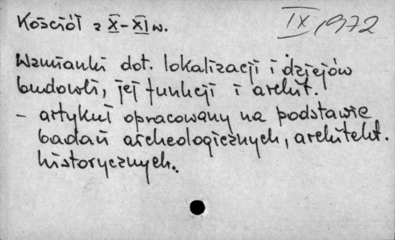 Kościół z X-XI w.
IX 1972
Wzmianki dot. lokalizacji i dziejów
budowli, jej funkcji i archit.
- artykuł opracowany na podstawie
badań archeologicznych, architekt.
historycznych.